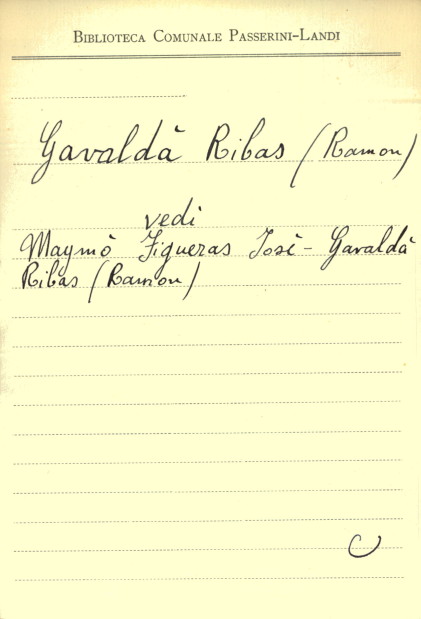 BIBLIOTECA COMUNALE PASSERINI-LANDI
Gavaldà Ribas (Ramon)
vedi
Maymò Figueras Josè - Gavaldà
Ribas (Ramon)
C